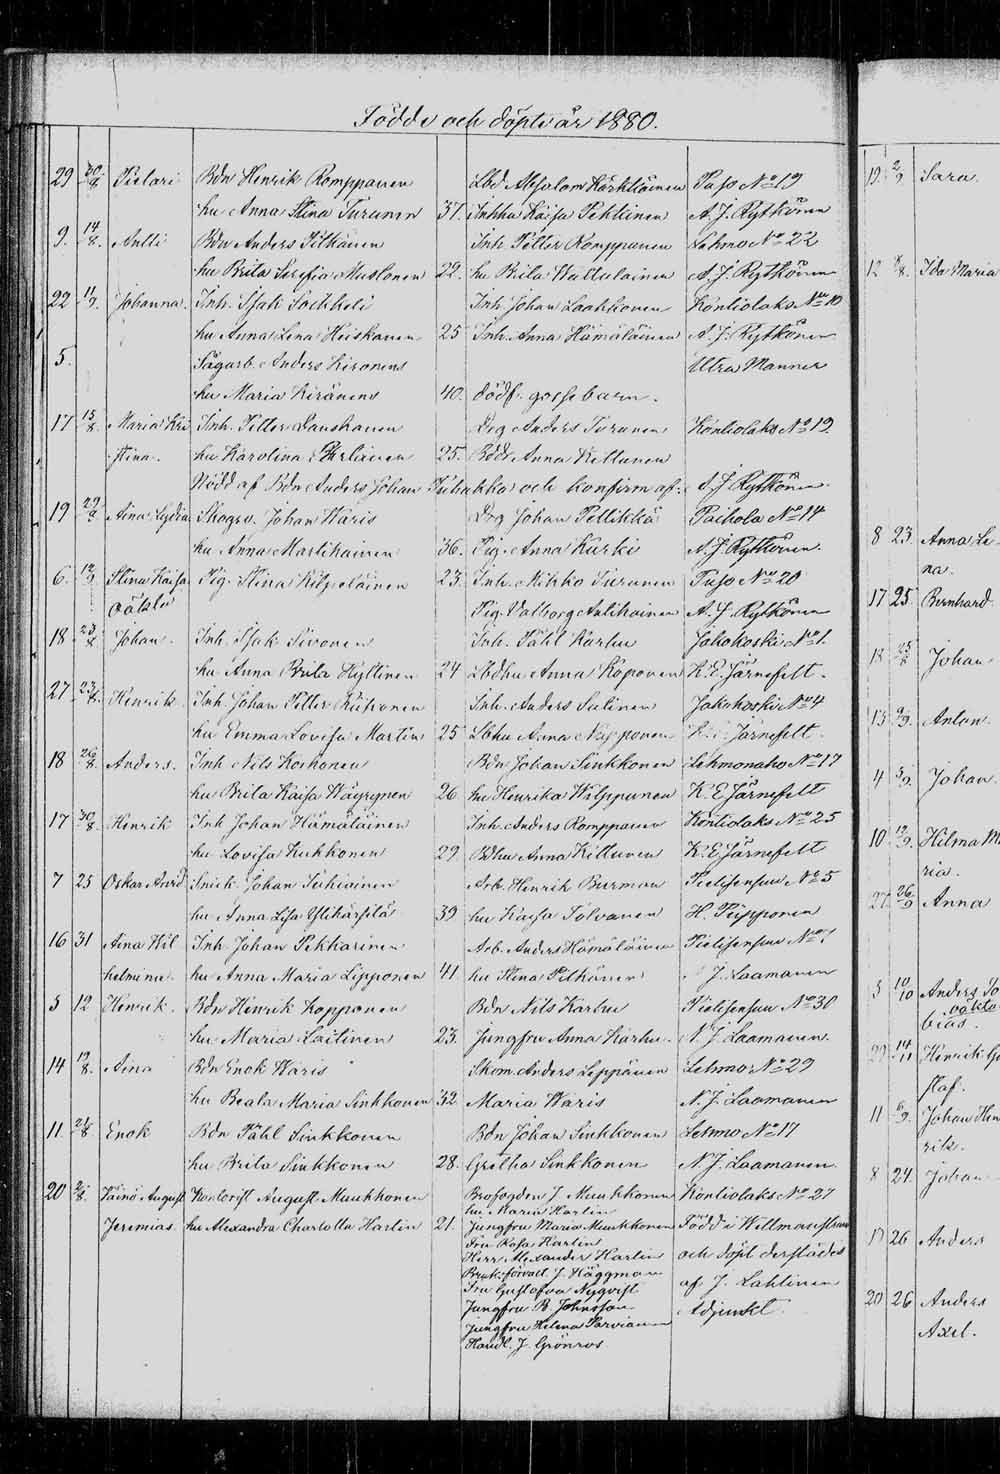 Födde och döpte år 1880.
29 30/8 Pietari Bdn Henrik Romppanen Lbd Absalom Kärkkäinen Puso No 19
hu Anna Stina Turunen 37. Inhhu Kaisa Pehtinen A. J. Rytkönen
9. 14/8. Antti Bdn Anders Pitkänen Inh. Petter Romppanen Lehmo No 22
hu Brita Serefia Mustonen 22. hu Brita Wattulainen A. J. Rytkönen
22 11/9 Johanna. Inh. Isak Sockkeli Inh. Johan Laakkonen Kontiolaks No 10
hu Anna Lena Heiskanen 25 Inh. Anna Hämäläinen A. J. Rytkönen
5. Sågarb. Anders Hironens Utra Manner
hu Maria Hiränens 40. dödf. gossebarn.
17 15/8. Maria Kri Inh. Petter Danskanen Drg Anders Turunen Kontiolaks No 19.
stina. hu Karolina 25. Bdn Anna Kettunen
Nödd af Bdn Anders Johan och konfirm af: A. J. Rytkönen.
19 29/8 Aina Lydia Skogsv. Johan Waris Drg Johan Pellikkä Paihola No 14
hu Anna Martikainen 36. Pig. Anna Kurki A. J. Rytkönen.
6. 12/9 Stina Kaisa Pig. Stina Kilpeläinen 23. Inh. Mikko Turunen Puso No 20
oäkta Pig. Valborg Antikainen A. J. Rytkönen
18 23/8 Johan. Inh. Isak Sivonen Inh. Påhl Karhu Jakokoski No 1.
hu Anna Brita Hyttinen 24 Lbdhu Anna Koponen K. E. Järnefelt.
27 23/8. Henrik Inh. Johan Petter Inh. Anders Salinen Jakokoski No 4
hu Emma Lovisa Martin 25 Lbhu Anna K. E. Järnefelt.
18 26/8. Anders. Inh Nils Korhonen Bdn Johan Sinkkonen Lehmonaho No 17
hu Brita Kaisa Wäyrynen 26. hu Henrika Wilppunen K. E. Järnefelt
17 30/8. Henrik Inh Johan Hämäläinen Inh. Anders Romppanen Kontiolaks No 25
hu Lovisa Kukkonen 29. Bdhu Anna Kettunen K. E. Järnefelt
7 25 Oskar Arvid Snick. Johan Tuhiainen Arb. Henrik Burman Pielisensuu No 5
hu Anna Lisa 39 hu Kaisa Tolvanen H. Piipponen
16 31 Aina Wil Inh. Johan Pekkarinen Arb. Anders Hämäläinen Pielisensuu No 1
helmina. hu Anna Maria Lipponen 41. hu Stina Pitkänen N J. Laamanen
5 12 Henrik. Bdn Henrik Kopponen Bdn Nils Karhu Pielisensuu No 30
hu Maria Laitinen 23. Jungfru Anna Karhu. N. J. Laamanen.
14 19/8. Aina Bdn Enok Waris Skom. Anders Leppänen Lehmo No 29
hu Beata Maria Sinkkonen 32. Maria Waris N. J. Laamanen
11 21/8 Enok Bdn Påhl Sinkkonen Bdn Johan Sinkkonen Lehmo No 17
hu Brita Sinkkonen 28. Gretha Sinkkonen N. J. Laamanen.
20 2/8. Väinö August Kontorist August Maukkonen Brofogden J. Maukkonen Kontiolaks No 27
hu Maria Hartin
Jeremias. hu Alexandra Charlotta Hartin 21. Jungfru Maria Maukkonen Född i Willmanstrand
Fru Rosa Hartin
Herr Alexander Hartin och döpt derstädes
Bruksförvalt. J. Häggman
Fru Gustafva Nyqvist af J. Lahtinen
Jungfru B. Johnsson Adjunkt.
Jungfru Helena Parviainen
Handl. J. Grönros
19. 2/9 Sara.
12 8/8. Ida Maria
8 23. Anna Le-
na.
17 25. Bernhard.
18 25/8 Johan
13 9/9. Anton
4 5/9. Johan.
10. 12/9. Hilma Ma
ria.
27. 26/9 Anna
5 10/10 Anders To
oäkta
bias.
29 14/11 Henrik Gu
staf.
11 6/9. Johan Hen
rik.
8 24. Johan
17 26 Anders
20 26 Anders
Axel.